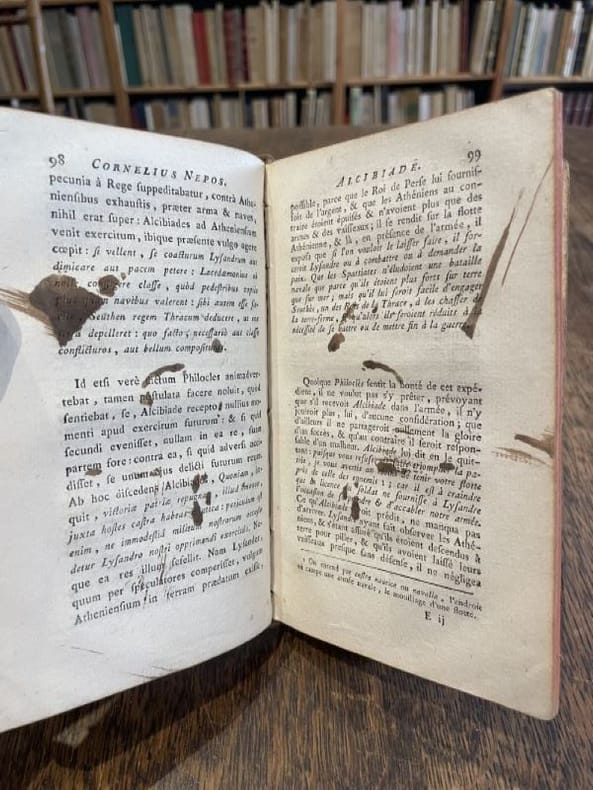 98 CORNELIUS NEPOS.
pecunia à Rege suppeditabatur, contrà Athe-
niensibus exhaustis, præter arma & naves,
nihil erat super: Alcibiades ad Atheniensium
venit exercitum, ibique præsente vulgo agere
cœpit: si vellent, se coacturum Lysandrum aut
dimicare aut pacem petere: Lacedæmonios eò
classe, quòd pedestribus copiis
navibus valerent: sibi autem esse fa-
Seuthen regem Thracum deducere, ut eum
terrâ depelleret: quo facto, necessariò aut classe
conflicturos, aut bellum composituros.
Id etsi verè dictum Philocles animadver-
tebat, tamen postulata facere noluit, quòd
sentiebat, se, Alcibiade recepto, nullius mo-
menti apud exercitum futurum: & si quid
secundi evenisset, nullam in ea re, suam
partem fore: contra ea, si quid adversi acci-
disset, se unum ejus delicti futurum reum.
Ab hoc discedens Alcibiades, Quoniam, in-
quit, victoriæ patriæ repugnas, illud moneo,
juxta hostes castra habeas nautica: periculum est
enim, ne immodestiâ militum nostrorum occasio
detur Lysandro nostri opprimendi exercitûs. Ne-
que ea res illum fefellit. Nam Lysander,
quum per speculatores comperisset, vulgum
Atheniensium in terram prædatum exisse,
ALCIBIADE. 99
possible, parce que le Roi de Perse lui fournis-
soit de l'argent, & que les Athéniens au con-
traire étoient épuisés & n'avoient plus que des
armes & des vaisseaux; il se rendit sur la flotte
Athénienne, & là, en présence de l'armée, il
exposa que si l'on vouloit le laisser faire, il for-
ceroit Lysandre ou à combattre ou à demander la
paix. Que les Spartiates n'éludoient une bataille
navale que parce qu'ils étoient plus forts sur terre
que sur mer; mais qu'il lui seroit facile d'engager
Seuthès, un des Rois de la Thrace, à les chasser de
la terre-ferme, & qu'alors ils seroient réduits à la
nécessité de se battre ou de mettre fin à la guerre.
Quoique Philoclès sentît la bonté de cet expé-
dient, il ne voulut pas s'y prêter, prévoyant
que s'il recevoit Alcibiade dans l'armée, il n'y
jouiroit plus, lui, d'aucune considération; que
d'ailleurs il ne partageroit nullement la gloire
d'un succès, & qu'au contraire il seroit respon-
sable d'un malheur. Alcibiade lui dit en le quit-
tant: puisque vous refusez de faire triompher la pa-
trie, je vous avertis au de tenir votre flotte
près de celle des ennemis 1: car il est à craindre
que la licence des soldats ne fournisse à Lysandre
l'occasion de & d'accabler notre armée.
Ce qu'Alcibiade avoit prédit, ne manqua pas
d'arriver. Lysandre ayant fait observer les Athé-
niens, & s'étant assuré qu'ils étoient descendus à
terre pour piller, & qu'ils avoient laissé leurs
vaisseaux presque sans défense, il ne négligea
1 On entend par castra nautica ou navalia, l'endroit
où campe une armée navale, le mouillage d'une flotte.
E ij